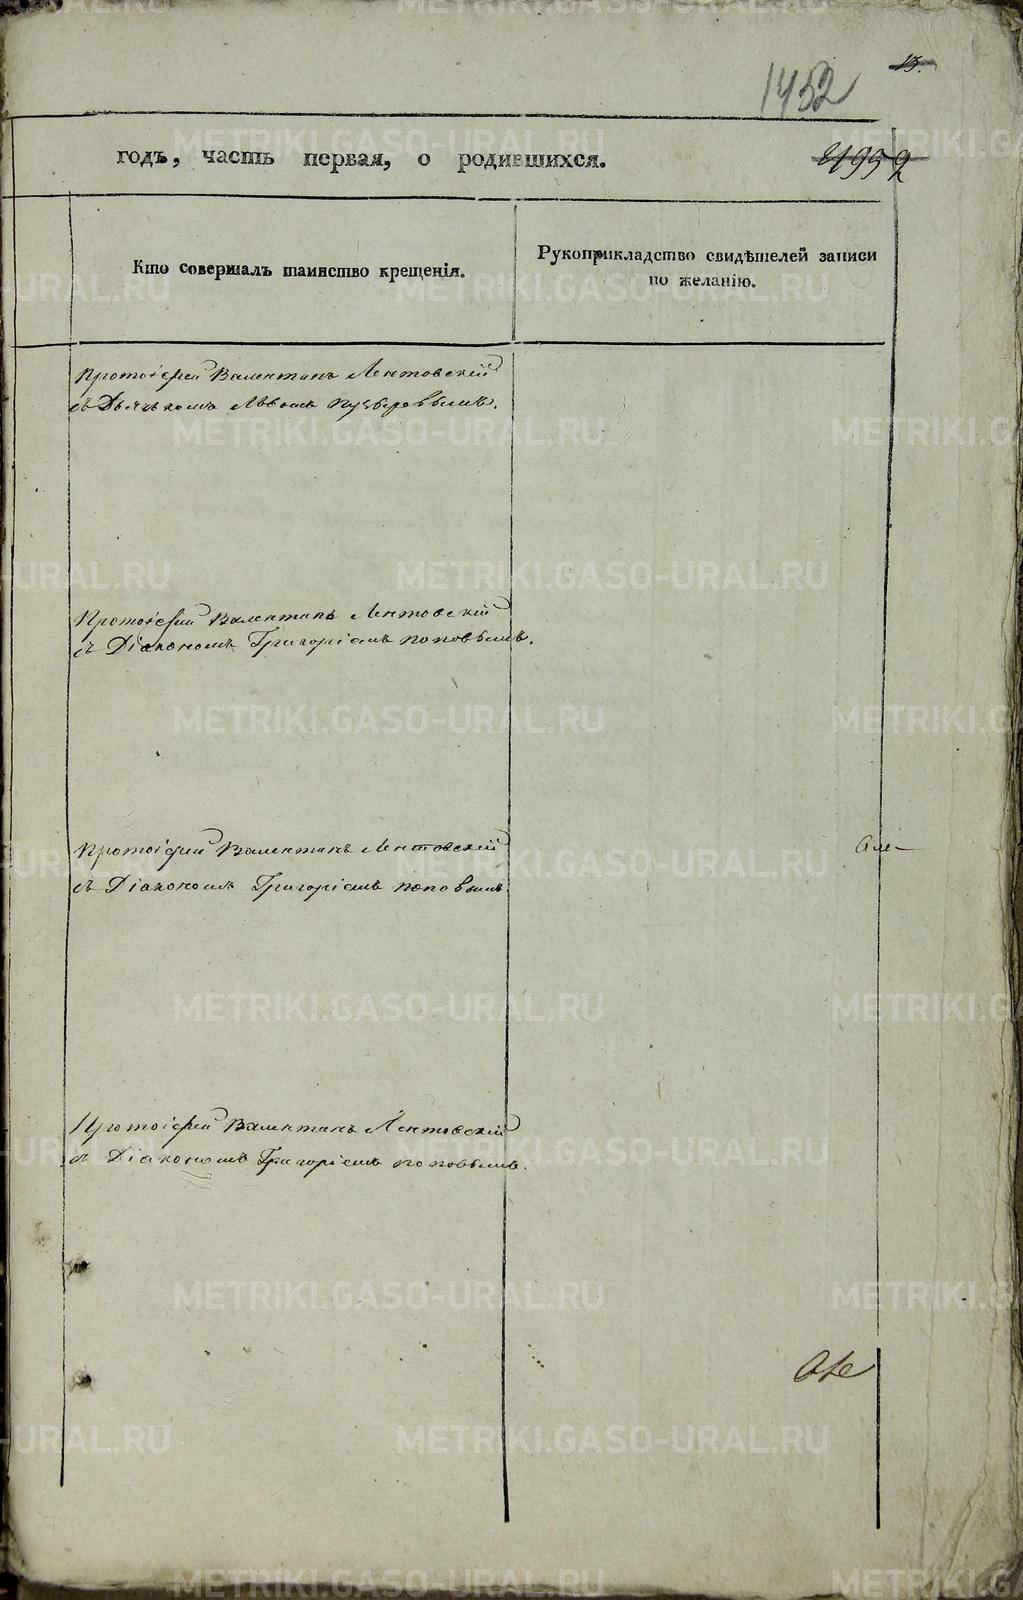 13.
1452
годъ, часть первая, о родившихся.
Кто совершалъ таинство крещенія.
Рукоприкладство свидѣтелей записи
по желанію.
Протоіерей Валентинъ Лентовскій
съ Дьячкомъ Львомъ
Протоіерей Валентинъ Лентовскій
съ Діакономъ Григоріемъ поповымъ.
Протоіерей Валентинъ Лентовскій
съ Діакономъ Григоріемъ поповымъ.
Протоіерей Валентинъ Лентовскій
съ Діакономъ Григоріемъ поповымъ.
METRIKI.GASO-URAL.RU